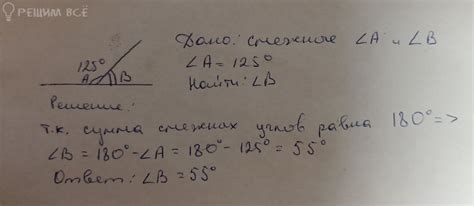 РЕШИМ ВСЁ
Дано: смежные ∠A и ∠B
∠A = 125°
Найти: ∠B
125°
A B
Решение:
т.к. сумма смежных углов равна 180° =>
∠B = 180° - ∠A = 180° - 125° = 55°
Ответ: ∠B = 55°